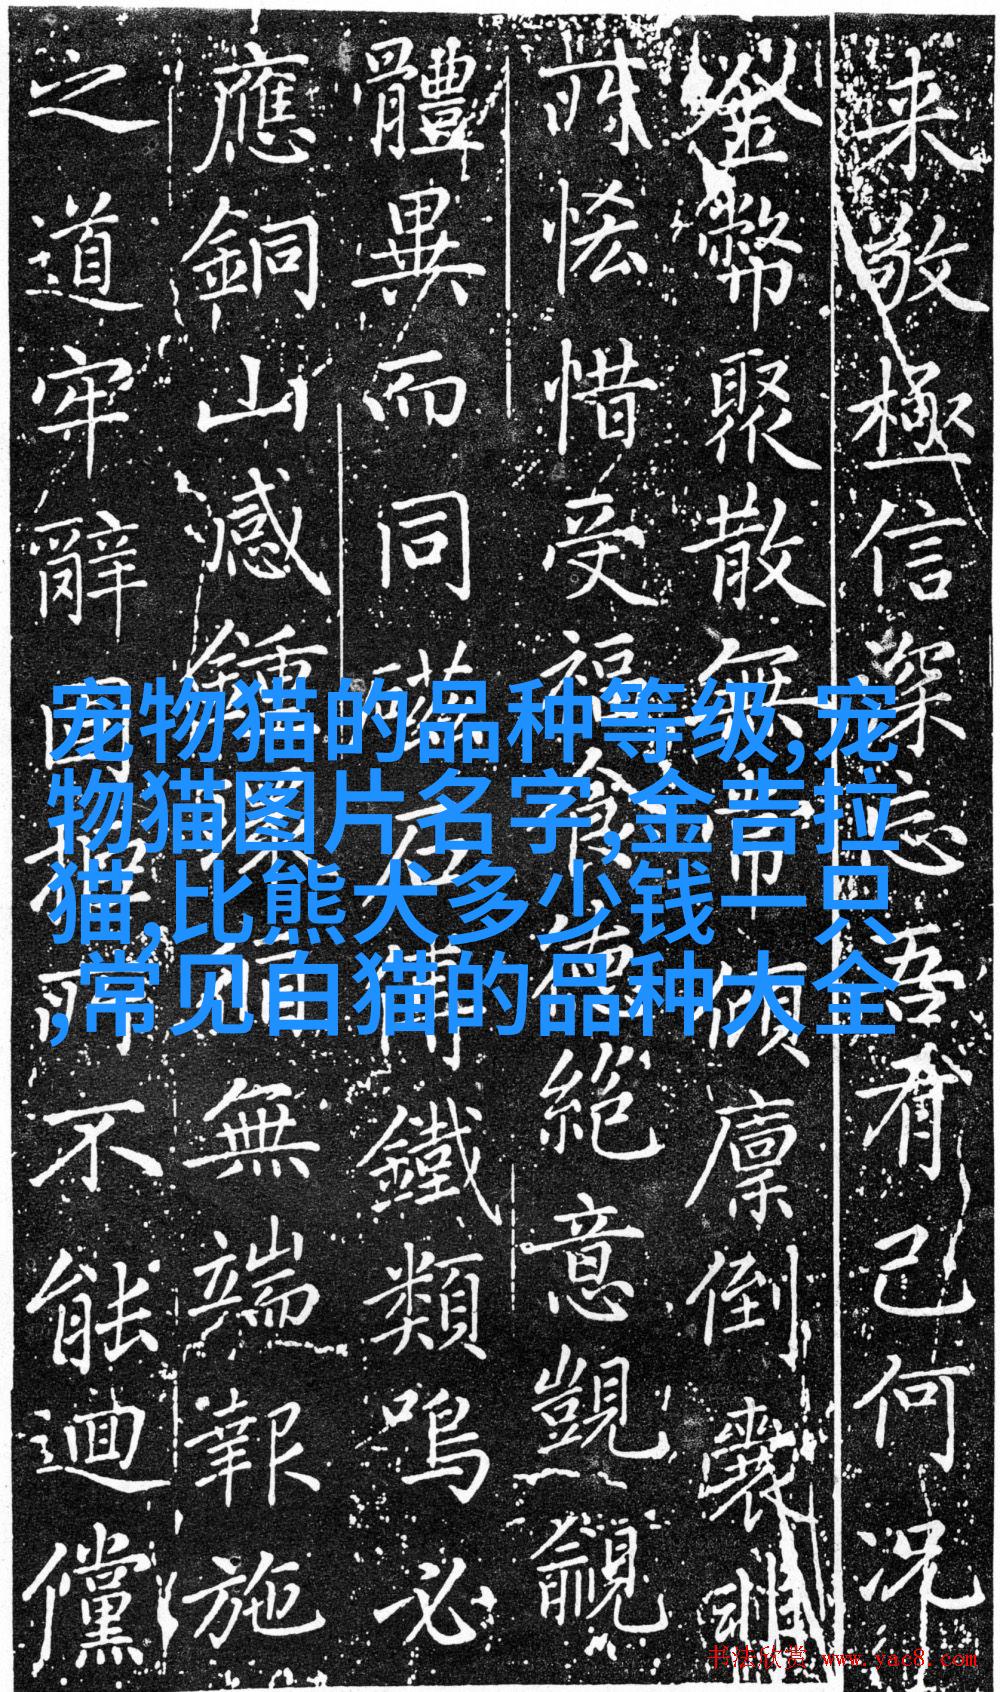 来敬極信深忘吾有己何况
金幣聚散無常傾廩倒
恡惜受福食德絕意覬覦
體異而同鐵類鳴必
應銅山感鍾無端報施
之道牢辭固拒而不能迴儻
宠物猫的品种等级,宠
物猫图片名字,金吉拉
猫,比熊犬多少钱一只
,常见白猫的品种大全
书法欣赏 www.yac8.com